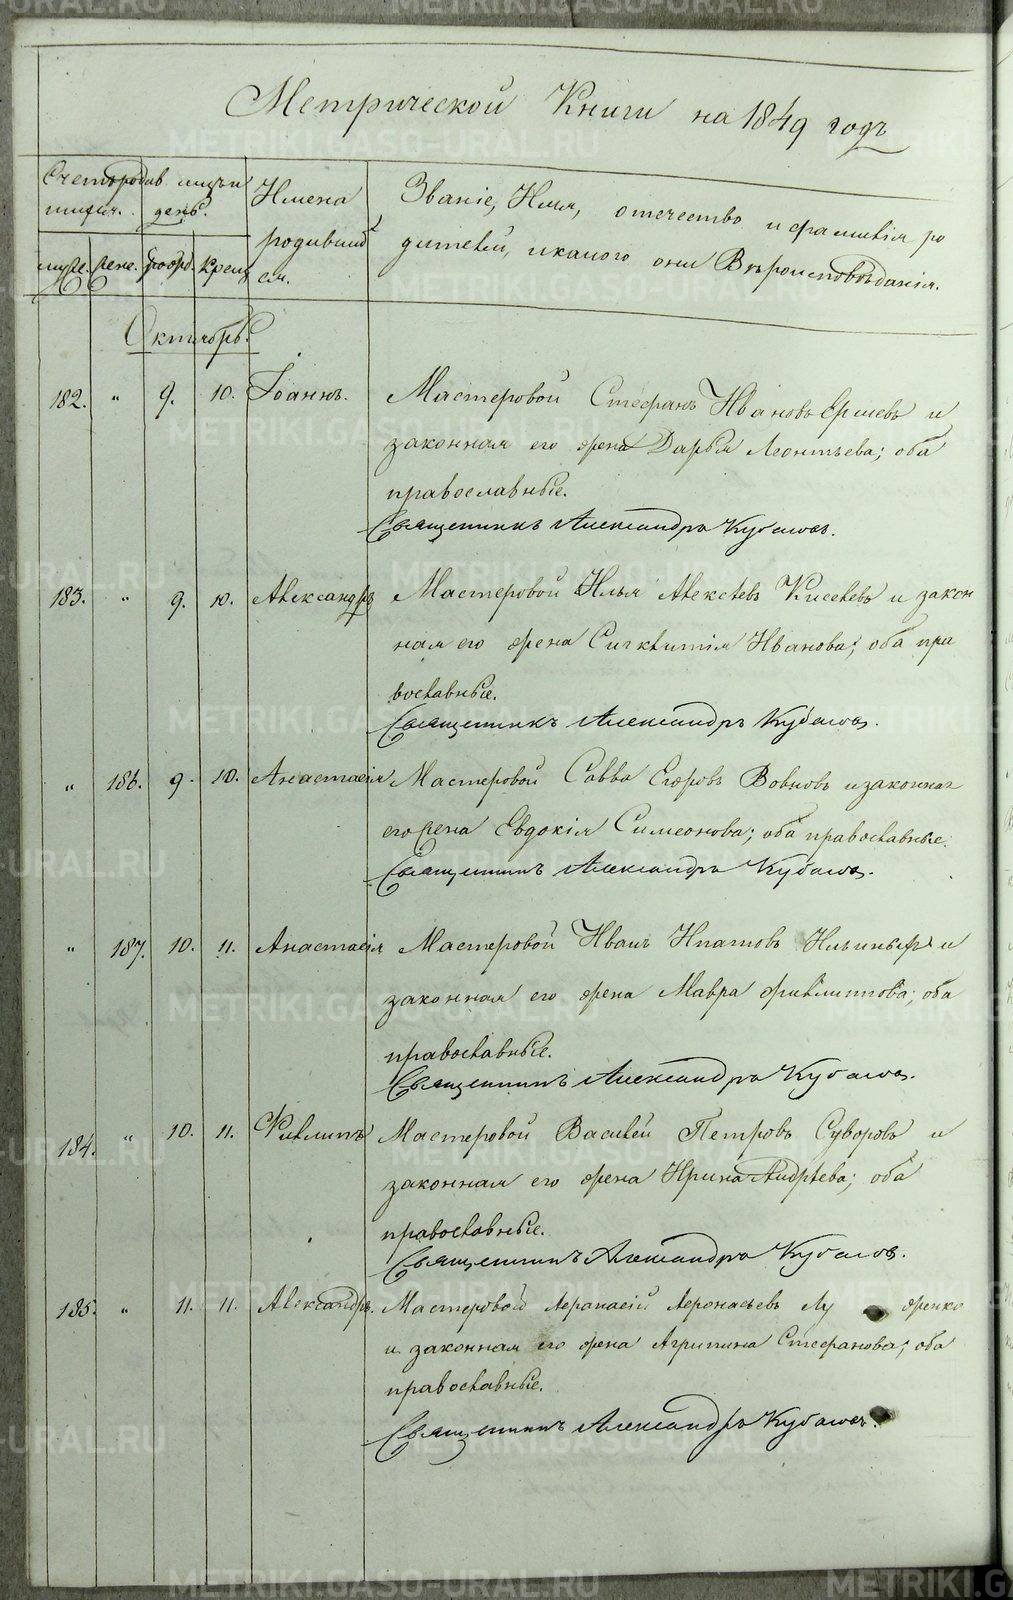 Метрической Книги на 1849 годъ
Счетъ родив шихся.
мѣсяцъ и день.
Имена родившихся.
Званіе, Имя, отечество и фамилія родителей, и какого они Вѣроисповѣданія.
муж. жен. рожд. крещ.
Октябрь.
182. " 9. 10. Іоаннъ. Мастеровой Стефанъ Ивановъ Ершевъ и
законная его жена Дарья Леонтьева; оба
православные.
Священникъ Александръ
183. " 9. 10. Александръ Мастеровой Илья Алексѣевъ Киселевъ и закон
ная его жена Сигклитія Иванова; оба пра
вославные.
Священникъ Александръ
" 186. 9. 10. Анастасія Мастеровой Савва Егоровъ Вовновъ и законная
его жена Евдокія Симеонова; оба православные.
Священникъ Александръ
" 187. 10. 11. Анастасія Мастеровой Иванъ Ипатовъ Ильиныхъ и
законная его жена Мавра Филиппова; оба
православные.
Священникъ Александръ
184. " 10. 11. Филиппъ Мастеровой Василій Петровъ Суворовъ и
законная его жена Ирина Андрѣева; оба
православные.
Священникъ Александръ
185. " 11. 11. Александръ. Мастеровой Афанасій Афонасьевъ
и законная его жена Агрипина Стефанова; оба
православные.
Священникъ Александръ
METRIKI.GASO-URAL.RU